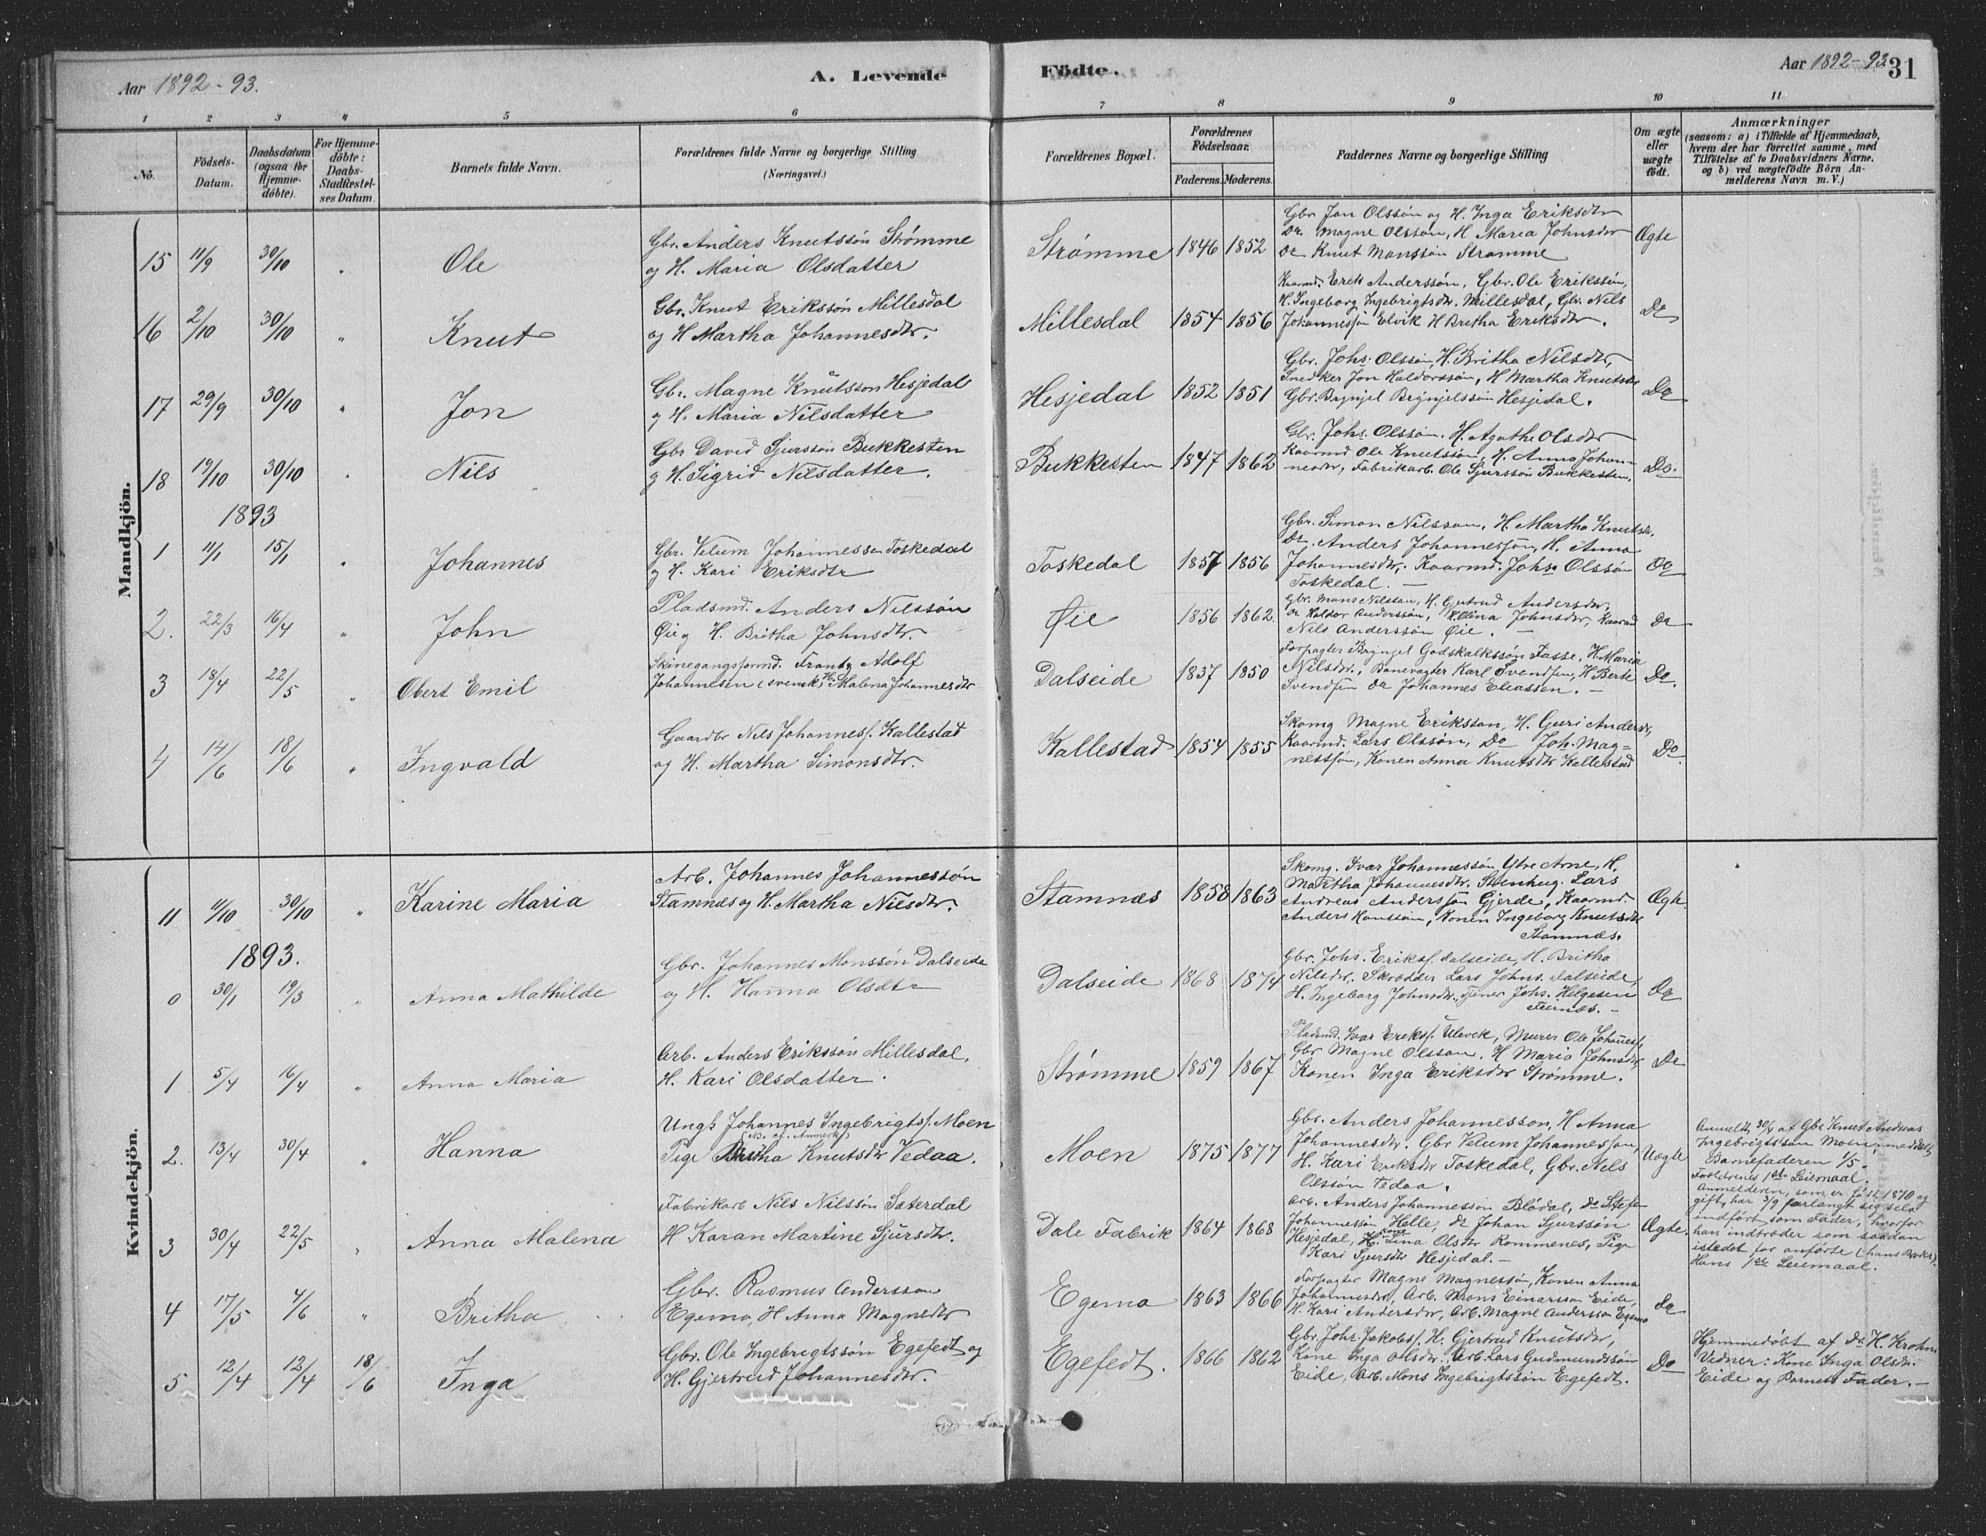 Aar 1892-93. A. Levende Födte. Aar 1892-93 31
1 2 3 4 5 6 7 8 9 10 11
No. Födsels-Datum. Daabsdatum (ogsaa for Hjemmedöbte). For Hjemmedöbte: Daabs-Stadfæstelses Datum. Barnets fulde Navn. Forældrenes fulde Navne og borgerlige Stilling (Næringsvei.) Forældrenes Bopæl. Forældrenes Födselsaar. Faderens. Moderens. Faddernes Navne og borgerlige Stilling Om ægte eller uægte födt. Anmærkninger (saasom: a) i Tilfælde af Hjemmedaab, hvem der har forrettet samme, med Tilföielse af to Daabsvidners Navne, og b) ved uægtefödte Börn Anmelderens Navn m. V.)
Mandkjön.
15 11/9 30/10 " Ole
Gbr. Anders Knutssøn Strømme
og H. Maria Olsdatter
Strømme 1846 1852
Gbr Jon Olssøn og H. Inga Eriksdtr
Do Magne Olssøn, H Maria Johnsdtr
Do Knut Monssøn Strømme
Ægte
16 2/10 30/10 " Knut
Gbr. Knut Erikssøn Millesdal
og H Martha Johannesdtr.
Millesdal 1854 1856
Kaarmd. Erik Anderssøn, Gbr. Ole Erikssøn,
H. Ingeborg Ingebrigtsdtr. Millesdal, Gbr. Nils
Johannessøn Elvik H Britha Eriksdtr.
Do
17 29/9 30/10 " Jon
Gbr. Magne Knutsson Hesjedal
og H. Maria Nilsdatter
Hesjedal 1852 1851
Gbr. Johs. Olssøn, H. Britha Nilsdtr,
Snedker Jon Haldorssøn, H Martha Knutsdtr
Gbr. Brynjel Brynjelssøn Hesjedal.
Do
18 19/10 30/10 " Nils
Gbr David Sjurssøn Bukkesten
og H. Sigrid Nilsdatter.
Bukkesten 1847 1862
Gbr. Johs. Olssøn, H. Agathe Olsdtr
Kaarmd Ole Knutssøn, H. Anna Johan-
nesdtr, Fabrikarb. Ole Sjurssøn Bukkesten.
Do.
1893
1 11/1 15/1 " Johannes
Gbr. Velum Johannessen Toskedal
og H. Kari Eriksdtr
Toskedal 1857 1856
Gbr. Simon Nilsson, H. Martha Knutsdtr.
Do. Anders Johannessøn, H. Anna
Johannesdtr. Kaarmd. Johs Olssøn
Toskedal. —
Do
2. 22/3 16/4 " John
Pladsmd. Anders Nilssøn
Øie og H. Britha Johnsdtr.
Øie 1856 1862.
Gbr. Mons Nilssøn, H. Gjertrud Andersdtr,
Do Haldor Anderssøn, H. Olina Johnsdtr, Kaarmd
Nils Anderssøn Øie. —
Do
3 18/4 22/5 " Obert Emil
Skinegangsformd. Frantz Adolf
Johannesen (svensk) H. Malena Johannesdtr
Dalseide 1837 1850
Forpagter Brynjel Godskalkssøn Fasse, H. Maria
Nilsdtr., Banevogter Karl Svendsen, H Berte
Svendsen Do Johannes Eleassen. —
Do.
4 14/6 18/6 " Ingvald
Gaardbr Nils Johannes. Kallestad
og H. Martha Simonsdtr
Kallestad 1854 1855
Skomg Magne Eriksson, H. Guri Andersdtr,
Kaarmd. Lars Olssøn, Do Joh. Mag-
nessøn, Konen Anna Knutsdtr Kallestad
Do.
Kvindekjön.
11 11/10 30/10 " Karine Maria
Arb. Johannes Johannessøn
Stamnæs og H. Martha Nilsdtr.
Stamnæs 1858 1863
Skomg. Ivar Johannessøn Ytre Arne, H.
Martha Johannesdtr. Stenhug. Lars
Andreas Anderssøn Gjerde, Kaarmd.
Anders Hanssøn, Konen Ingeborg Knutsdtr
Stamnæs.
Ægte.
1893.
0 30/1 19/3 " Anna Mathilde
Gbr. Johannes Monssøn Dalseide
og H. Hanna Olsdtr
Dalseide 1868 1874
Gbr. Johs. Eriks. Dalseide, H. Britha
Nilsdtr, Skrædder Lars Johns. Dalseide,
H. Ingeborg Johnsdtr. Tjener Johs. Helgesen
Do
1 5/4 16/4 " Anna Maria
Arb. Anders Erikssøn Millesdal,
H. Kari Olsdatter.
Strømme 1859 1867
Pladsmd. Ivar Eriks. Ulevek, Murer Ole Johaness.
Gbr Magne Olssøn, H Maria Johnsdtr
Konen Inga Eriksdtr Strømme.
Do
2. 13/4 30/4 " Hanna
Ungk Johannes Ingebrigts. Moen
(N.B. cf. Anmærk)
Pige Britha Knutsdtr Vedaa.
Moen 1875 1877
Gbr. Anders Johannesson, H Anna
Johannesdtr. Gbr Velum Johannessøn,
H. Kari Eriksdtr Toskedal, Gbr. Nils
Olssøn Vedaa.
Uægte
Anmeldt 30/4 af Gbr Knut Andreas
Ingebrigtssøn Moen, meddelt
Barnefaderen 1/5.
Forældrenes 1ste Leiermaal.
Anmelderen, som er født 1870 og
gift, har 3/9 forlangt sig selv
indført som Fader, hvorfor
han indtræder som saadan
istedet for anførte (hans Broder).
Hans 1ste Leiermaal.
3 30/4 22/5 " Anna Malena
Fabrikarb Nils Nilssøn Saterdal
H Karan Martine Sjursdtr.
Dale Fabrik 1864 1868
Arb. Anders Johannessøn Blødal, Do Stefen
Johannessøn Helle, Do Johan Sjurssøn
Hesjedal, H. Lina Olsdtr Rommenes, Pige
Kari Sjursdtr Hesjedal. —
Ægte.
4 17/5 4/6 " Britha
Gbr. Rasmus Andersson
Egemo, H Anna Magnesdtr
Egemo 1863 1866
Forpagter Magne Magnessøn, Konen Anna
Johannesdtr, Arb. Mons Einarsson Eide,
H. Kari Andersdtr, Arb. Magne Andersson Egemo
Do
5 12/4 12/4 18/6 Inga
Gbr. Ole Ingebrigtssøn Egefedt og
H. Gjertrud Johannesdtr.
Egefedt. 1866 1862
Gbr. Johs. Jakobs. H. Gjertrud Knutsdtr,
Kone Inga Olsdtr. Arb. Lars Gudmundssøn
Eide, Arb. Mons Ingebrigtssøn Egefedt.
Do
Hjemmedøbt af Dr. H. Krohn
Vidner: Kone Inga Olsdtr.
Eide og Barnets Fader. —